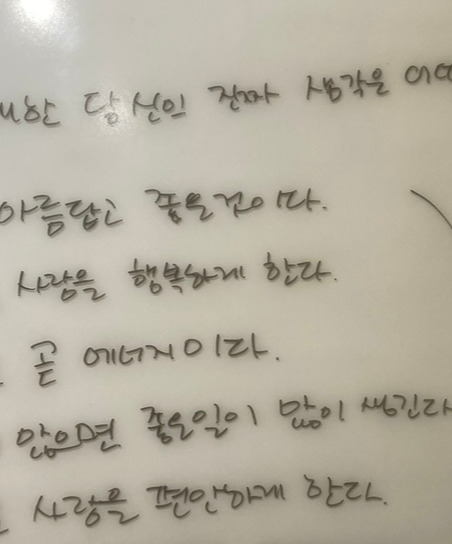 대한 당신의 진짜 생각은
아름답고 좋은것이다.
사람을 행복하게 한다.
곧 에너지이다.
많으면 좋은일이 많이 생긴다
사람을 편안하게 한다.